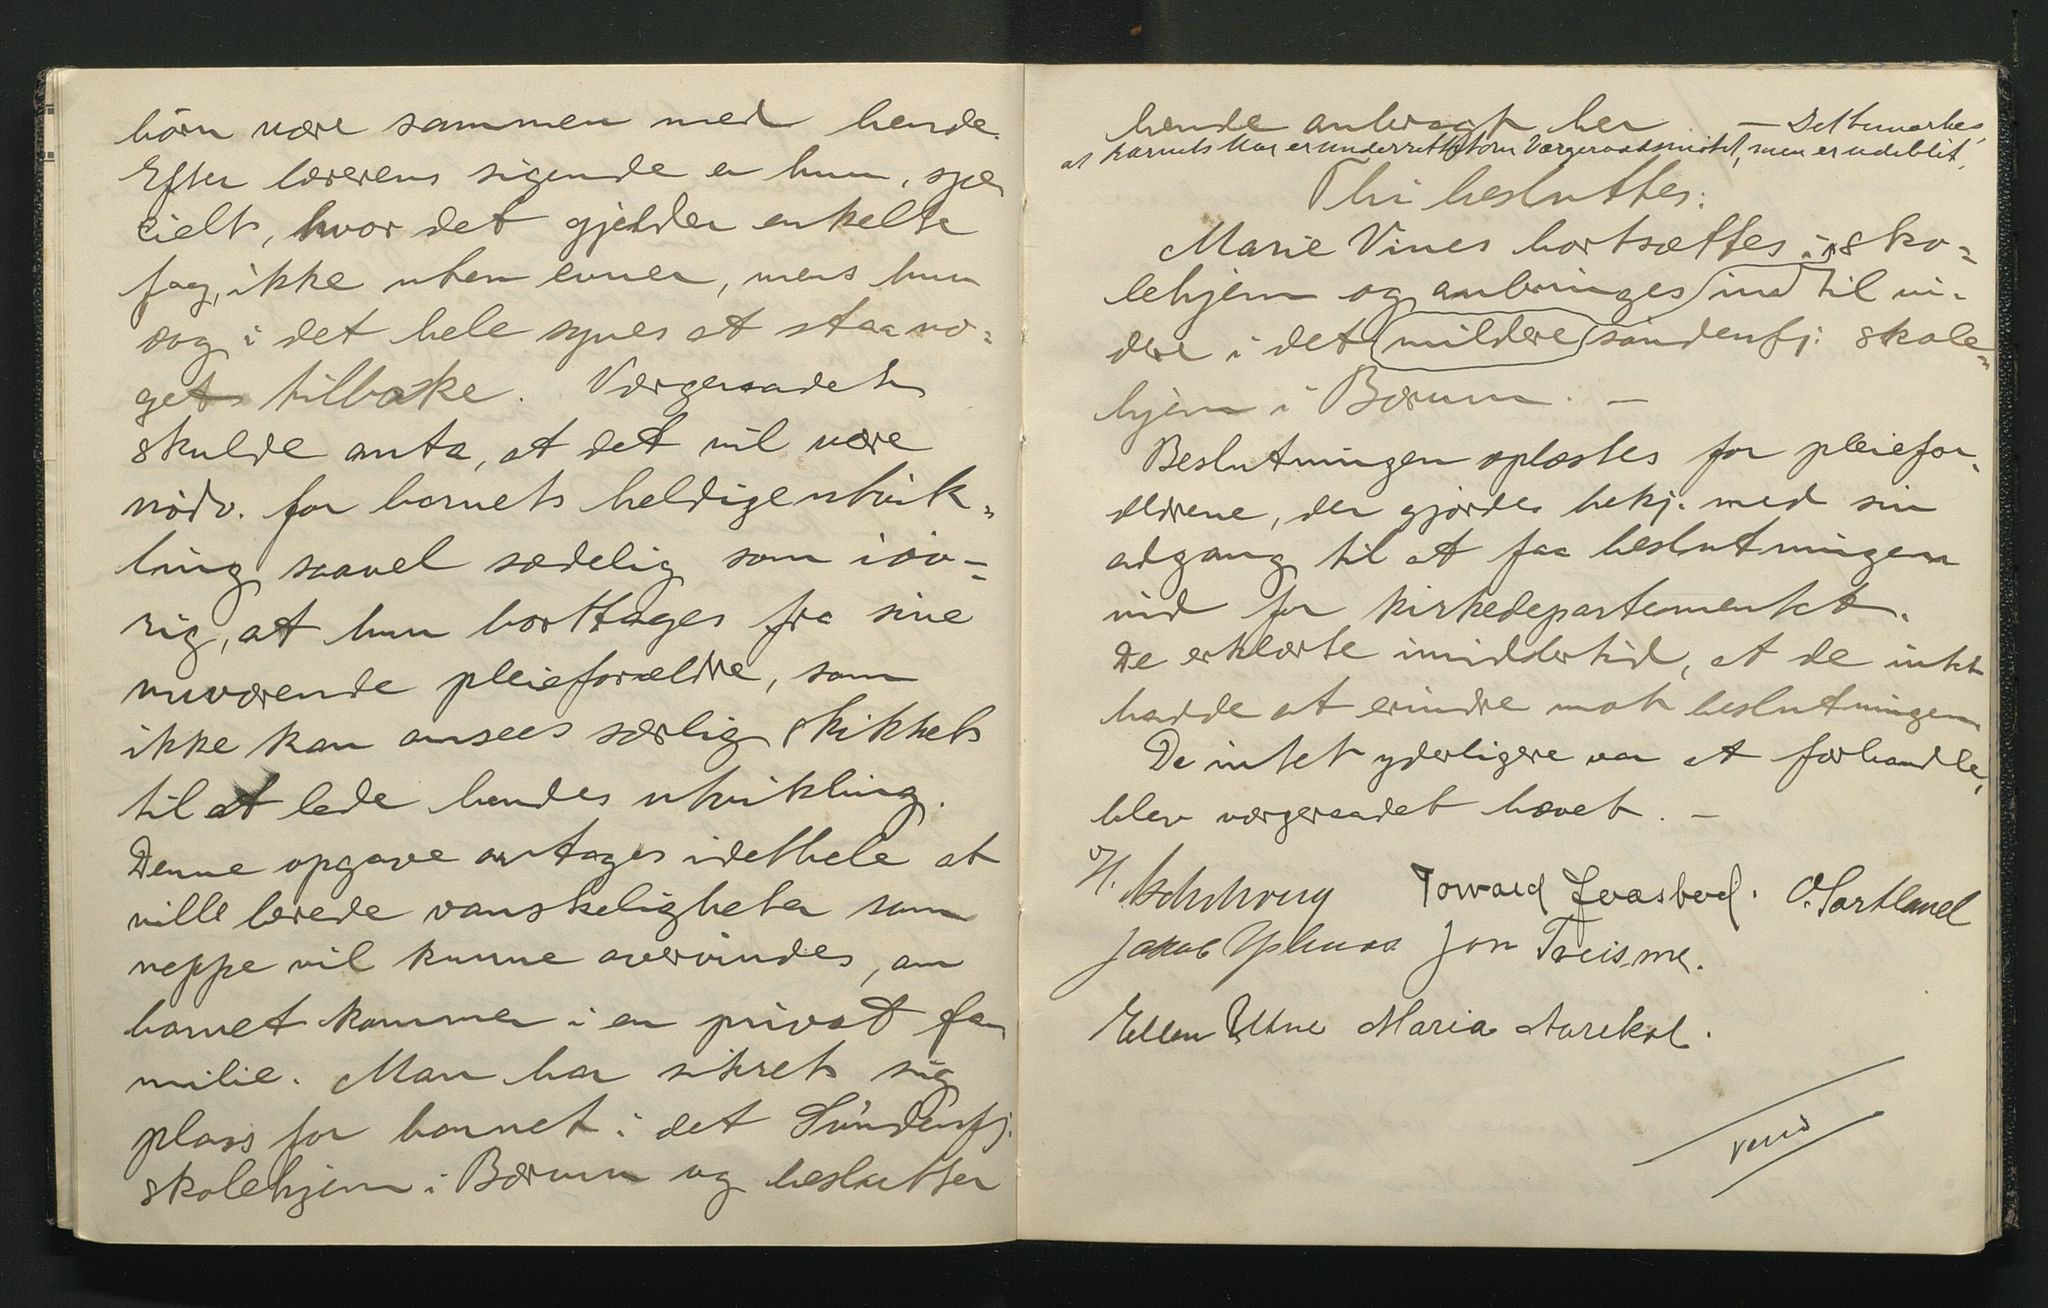 börn være sammen med hende.
Efter lærerens sigende er hun, spe
cielt, hvor det gjelder enkelte
fag, ikke uten evner, mens hun
dog i det hele synes at staa no-
get tilbake. Værgeraadet
skulde anta, at det vil være
nödv. for barnets heldige utvik-
ling saavel sædelig som iöv-
rig, at hun borttages fra sine
nuværende pleieforældre, som
ikke kan ansees særlig skikket
til at lede hendes utvikling.
Denne opgave antages idethele at
ville berede vanskeligheter som
neppe vil kunne overvindes, om
barnet kommer i en privat fa
milie. Man har sikret sig
plass for barnet i det Söndenfj.
skolehjem i Bærum og beslutter
hende anbragt her — Det bemærkes
at barnets mor er underrettet om Værgeraadsmötet, men er udeblit.
Thi besluttes:
Marie Vines bortsættes i sko-
lehjem og anbringes ind til vi-
dere i det mildere söndenfj. skole-
hjem i Bærum. —
Beslutningen oplæstes for pleiefor-
ældrene, der gjordes bekj. med sin
adgang til at faa beslutningen
ind for kirkedepartementet.
De erklærte imidlertid, at de intet
hadde at erindre mot beslutningen
Da intet yderligere var at forhandle,
blev værgeraadet hævet. —
Torvald O. Sartland
Jakob Jon Treisme.
Ellen Utne Maria Aarekol.
vend